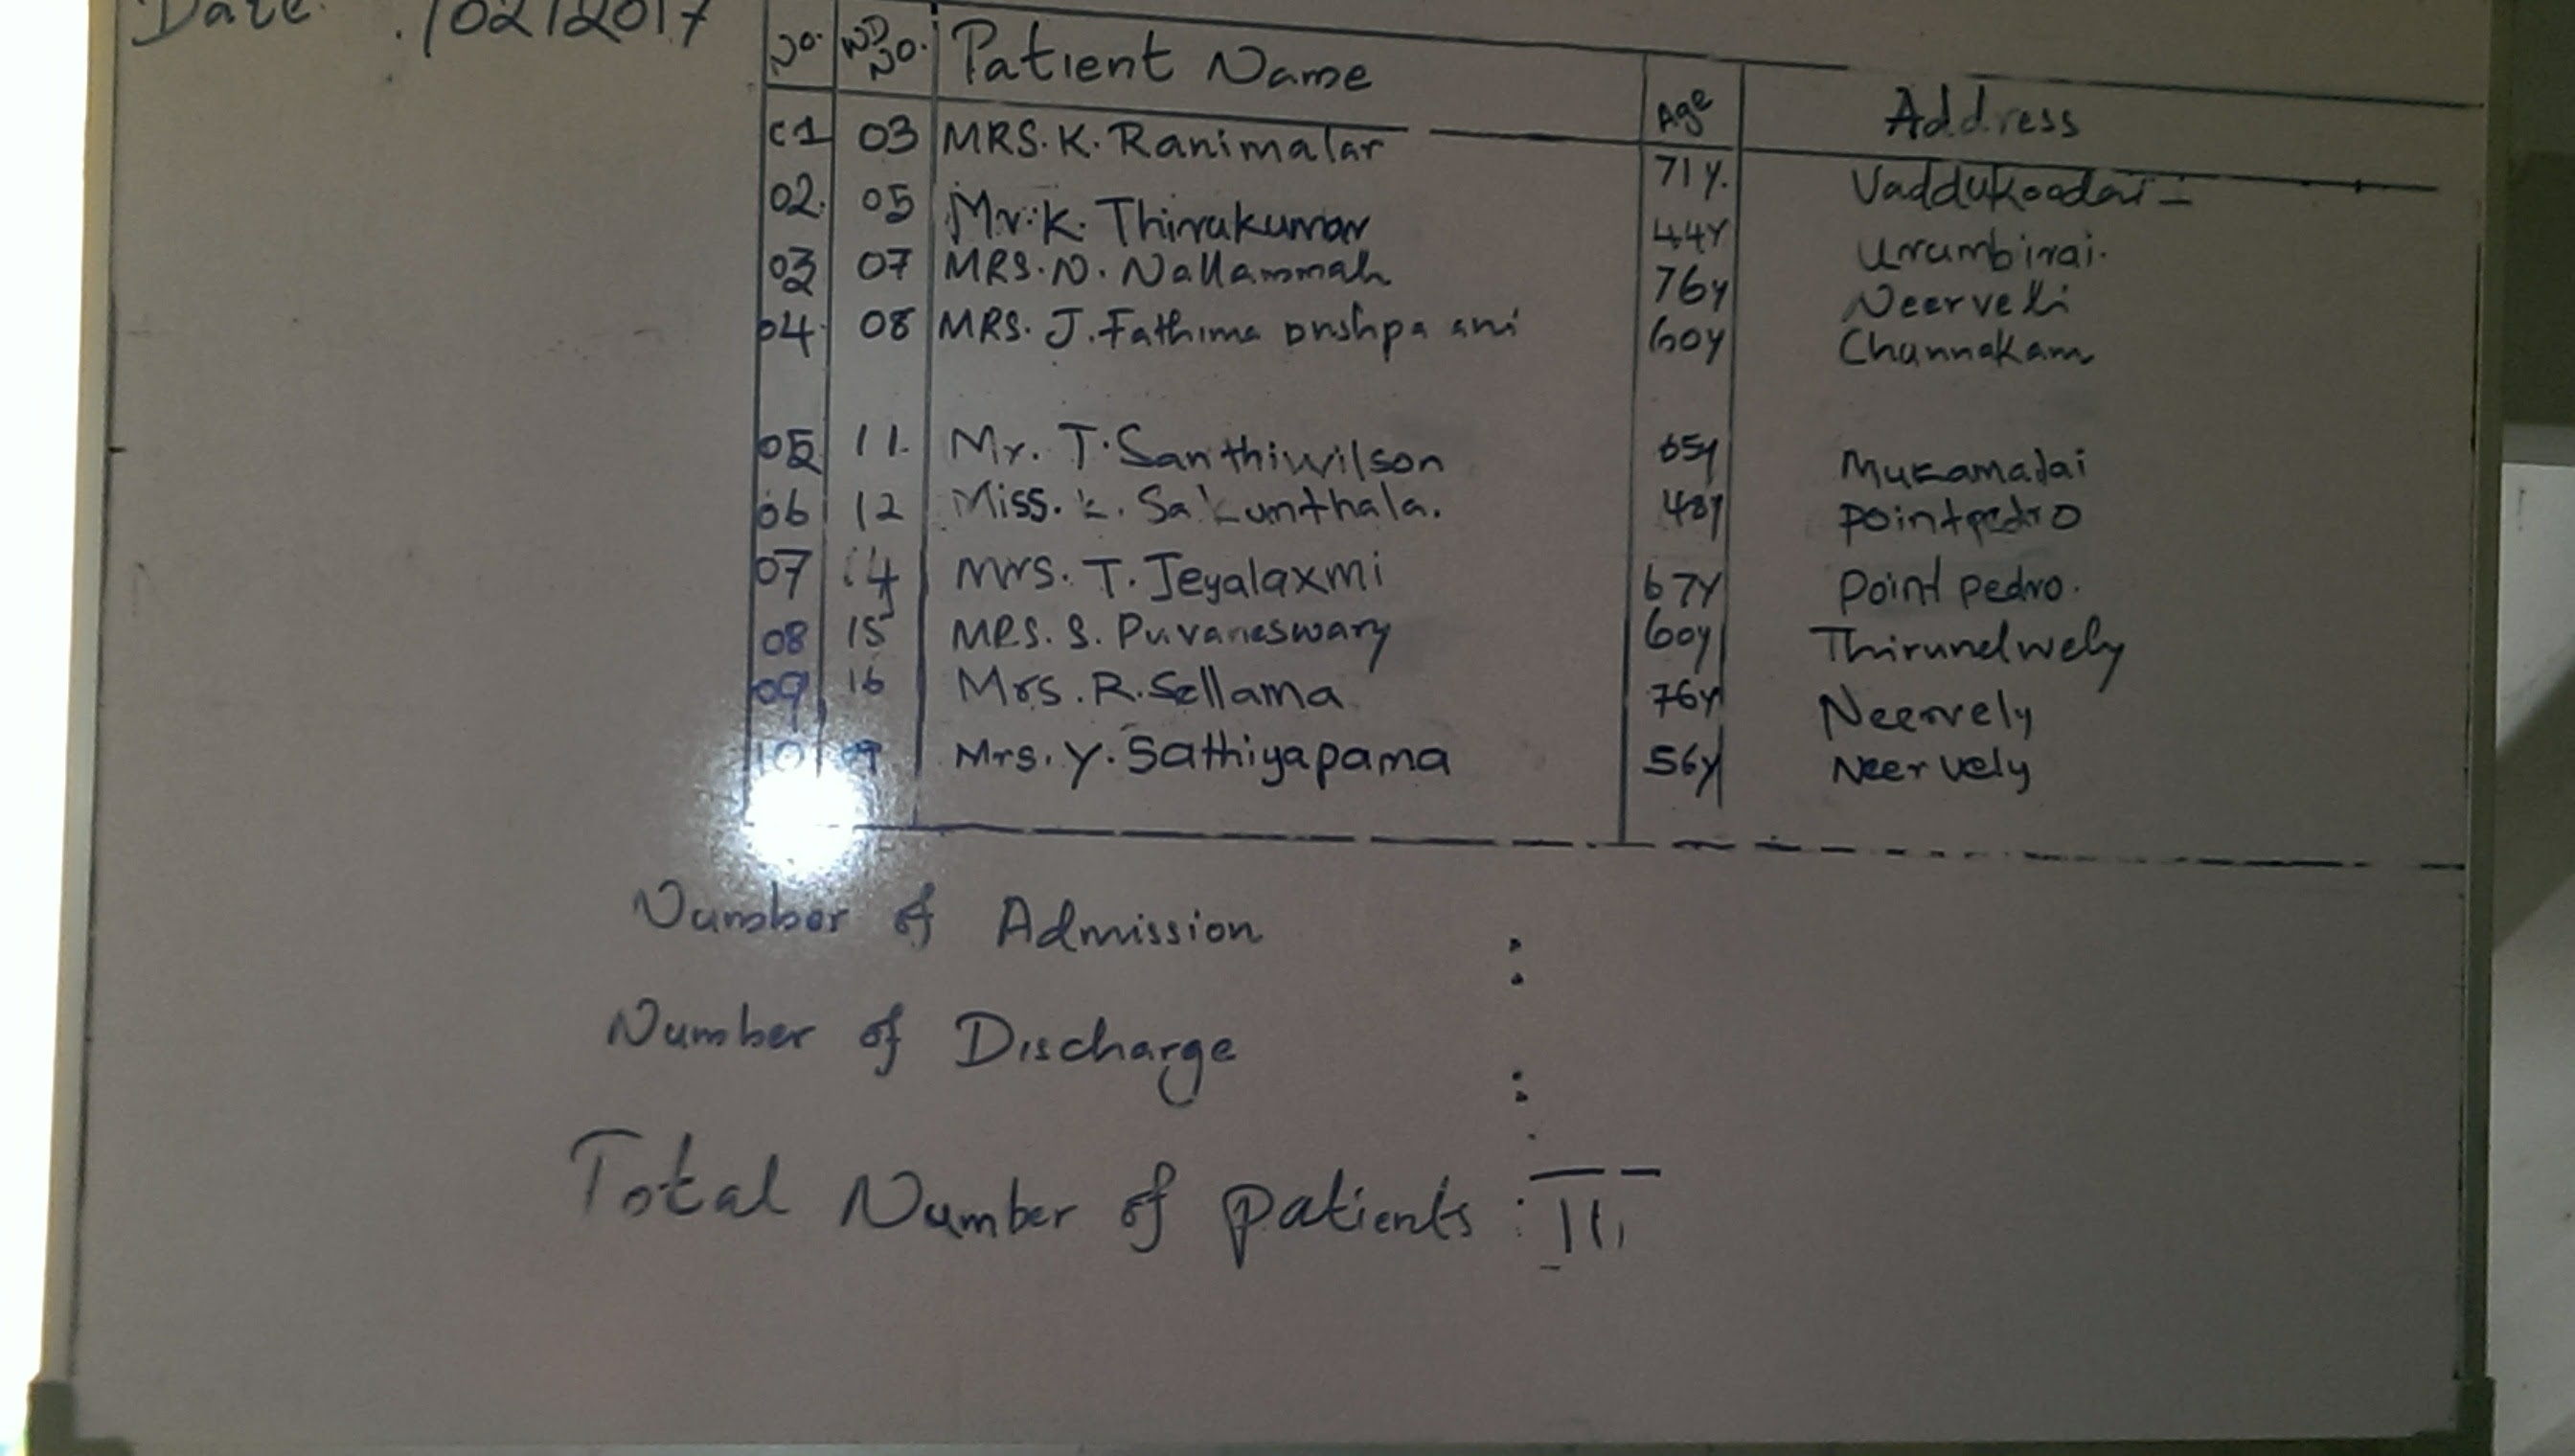 Date /02/2017
No. WD No. Patient Name Age Address
01 03 MRS. K. Ranimalar 71y. Vaddukoodai
02. 05 Mr. K. Thirukumar 44y Urumbirai.
03 07 MRS. N. Nallammah 76y Neerveli
04 08 MRS. J. Fathima 60y Chunnakam
05 11. Mr. T. Santhiwilson 65y
06 12 Miss. K. Sakunthala. 48y pointpedro
07 14 Mrs. T. Jeyalaxmi 67y Point Pedro.
08 15 MRS. S. Puvaneswary 60y Thirunelwely
09 16 Mrs. R. Sellama 76y Neervely
10 Mrs. Y. Sathiyapama 56y Neervely
Number of Admission :
Number of Discharge :
Total Number of patients :